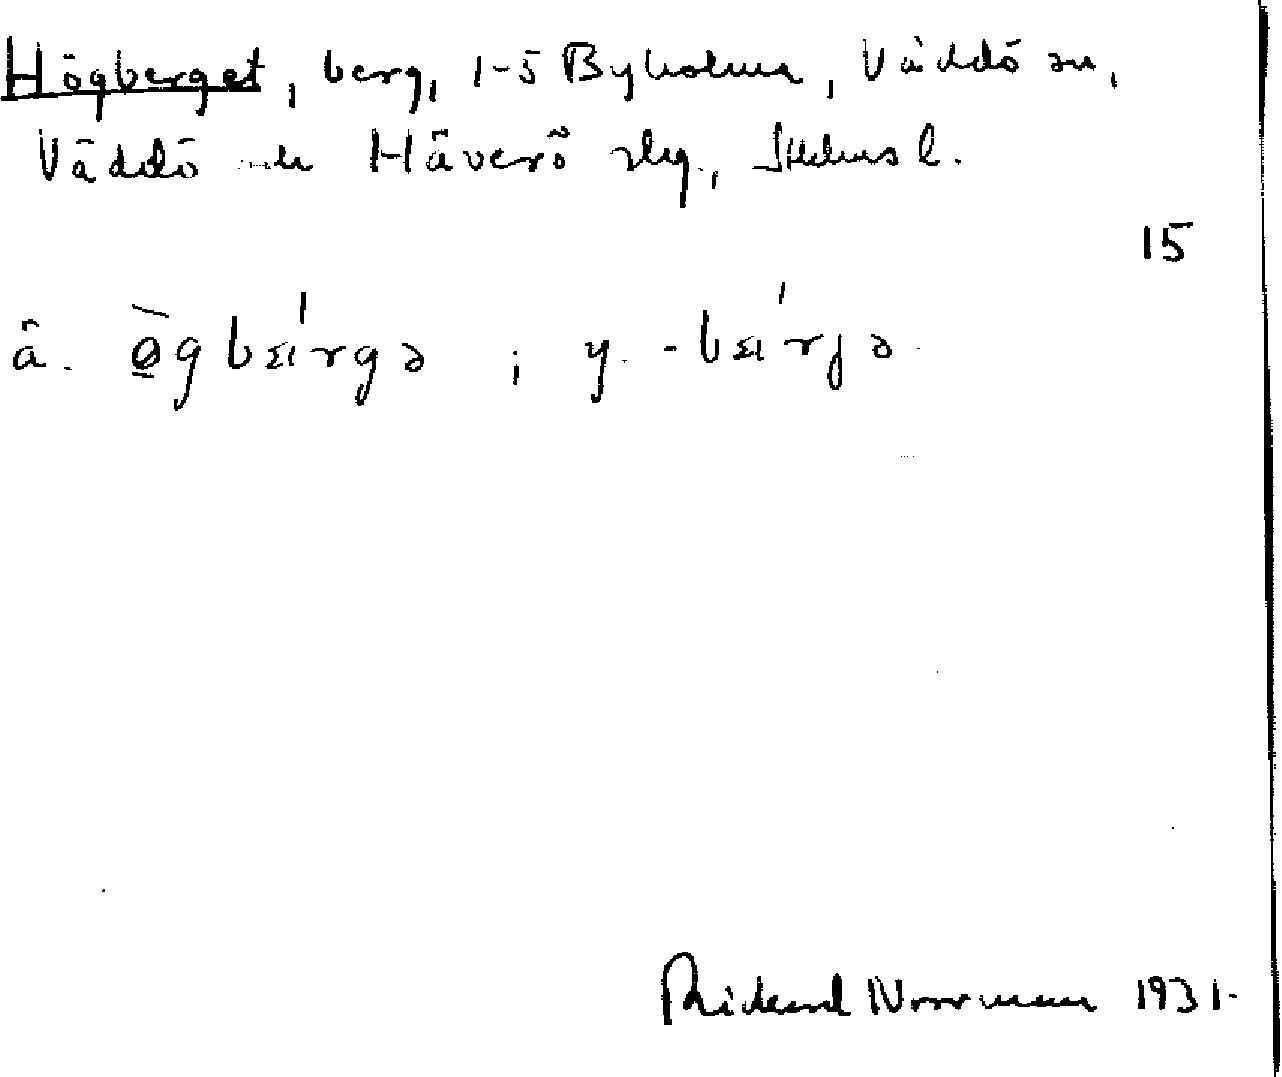 Högberget, berg, 1-5 Byholma, Väddö sn,
Väddö och Häverö slg., Sthlms l.
15
ä. ø̀gbɛırgə ; y. -bɛırjə
Rickard Norrman 1931.